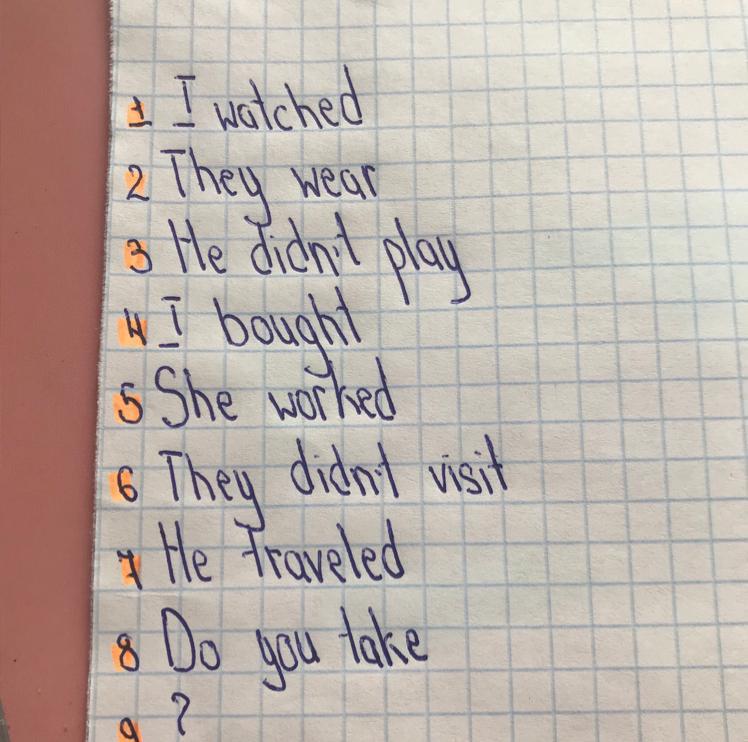 1 I watched
2 They wear
3 He didn't play
4 I bought
5 She worked
6 They didn't visit
7 He traveled
8 Do you take
9 ?